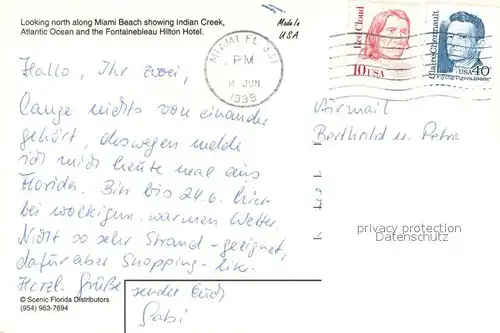 Looking north along Miami Beach showing Indian Creek,
Atlantic Ocean and the Fontainebleau Hilton Hotel.
Made in
USA
MIAMI FL 331
PM
14 JUN
1999
Red Cloud
10 USA
Claire Chennault
USA 40
Flying Tigers, 1940s
Hallo, Ihr zwei,
lange nichts von einander
gehört, deswegen melde
ich mich heute mal aus
Florida. Bin bis 24.6. hier
bei wolkigem, warmen Wetter.
Nicht so sehr Strand-geeignet,
dafür aber Shopping-like.
Herzl. Grüße sendet Euch
Gabi
Airmail
Berthold u. Petra
privacy protection
Datenschutz
© Scenic Florida Distributors
(954) 963-7694